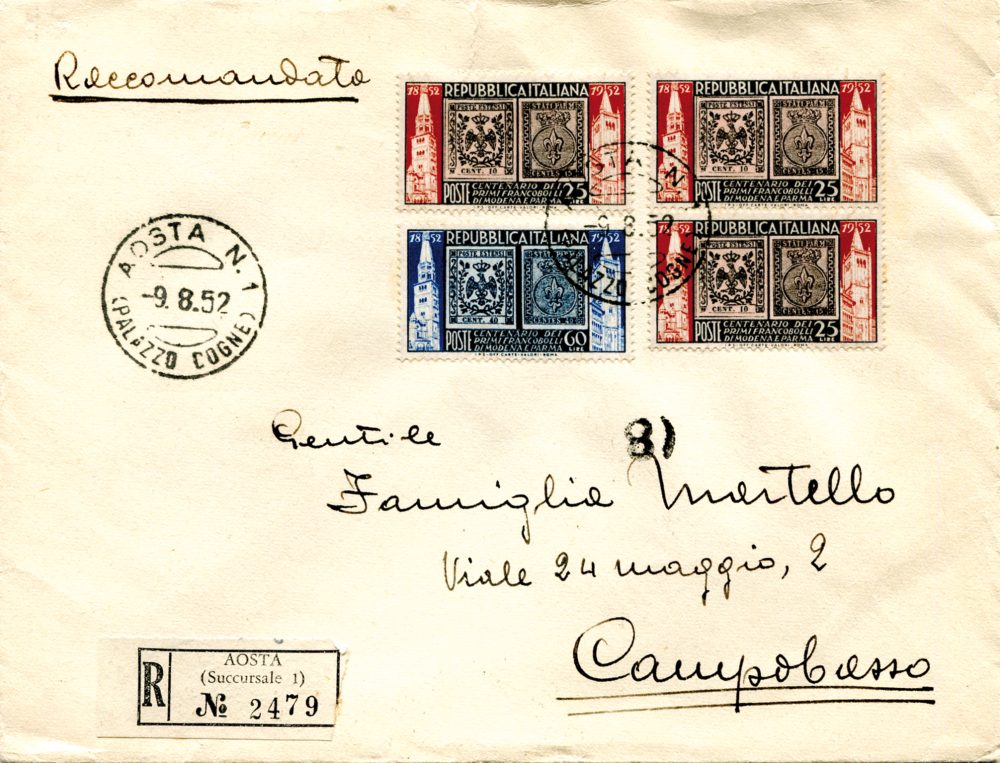 Raccomandata
1852 REPUBBLICA ITALIANA 1952
POSTE ESTENSI
CENT. 10
STATI PARM
CENTES 15
POSTE CENTENARIO DEI PRIMI FRANCOBOLLI DI MODENA E PARMA 25 LIRE
I.P.S-OFF. CARTE-VALORI-ROMA
1852 REPUBBLICA ITALIANA 1952
POSTE ESTENSI
CENT. 10
STATI PARM
CENTES 15
POSTE CENTENARIO DEI PRIMI FRANCOBOLLI DI MODENA E PARMA 25 LIRE
1852 REPUBBLICA ITALIANA 1952
POSTE ESTENSI
CENT. 40
STATI PARM
CENTES 40
POSTE CENTENARIO DEI PRIMI FRANCOBOLLI DI MODENA E PARMA 60 LIRE
I.P.S-OFF. CARTE-VALORI-ROMA
1852 REPUBBLICA ITALIANA 1952
POSTE ESTENSI
CENT. 10
STATI PARM
CENTES 15
POSTE CENTENARIO DEI PRIMI FRANCOBOLLI DI MODENA E PARMA 25 LIRE
I.P.S-OFF. CARTE-VALORI-ROMA
AOSTA N. 1
-9.8.52
(PALAZZO COGNE)
AOSTA N. 1
-9.8.52
(PALAZZO COGNE)
Gentile
81
Famiglia Martello
Viale 24 maggio, 2
Campobasso
R
AOSTA
(Succursale 1)
№ 2479